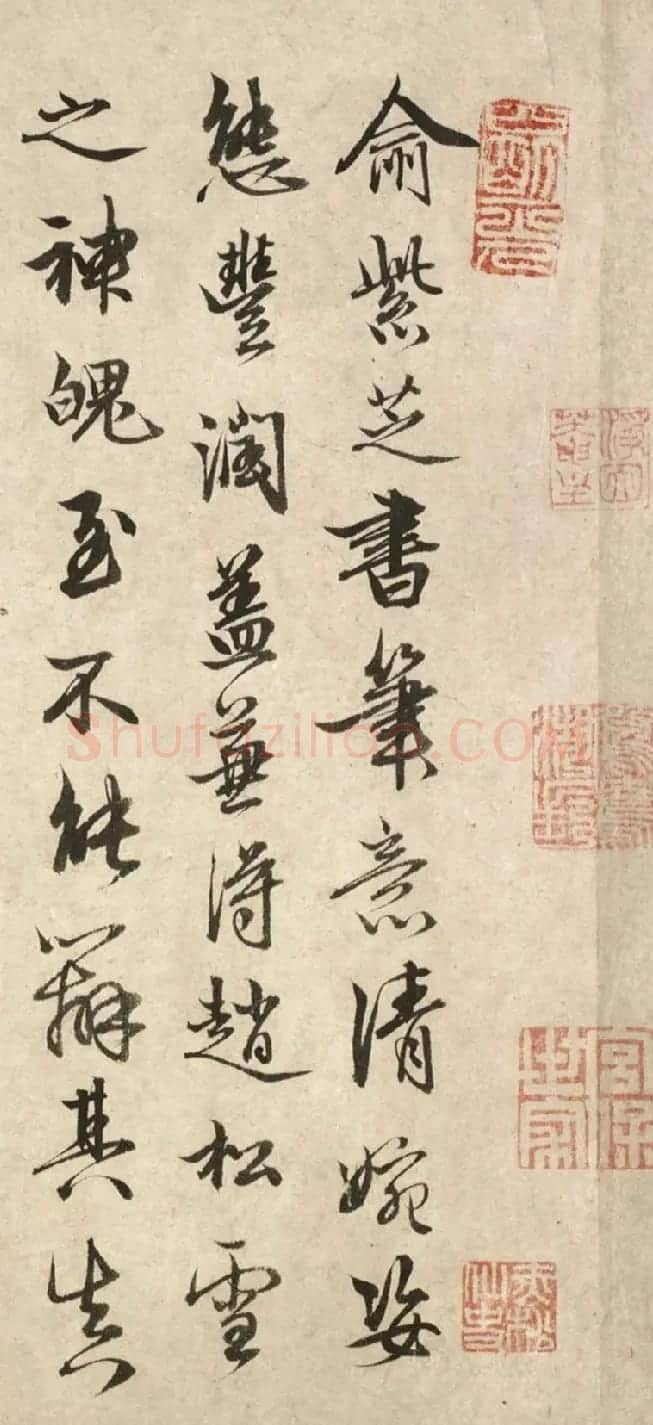 俞紫芝書筆意清婉姿
態豐潤葢兼得趙松雪
之神魄至不能辯其真
Shufaziliao.com